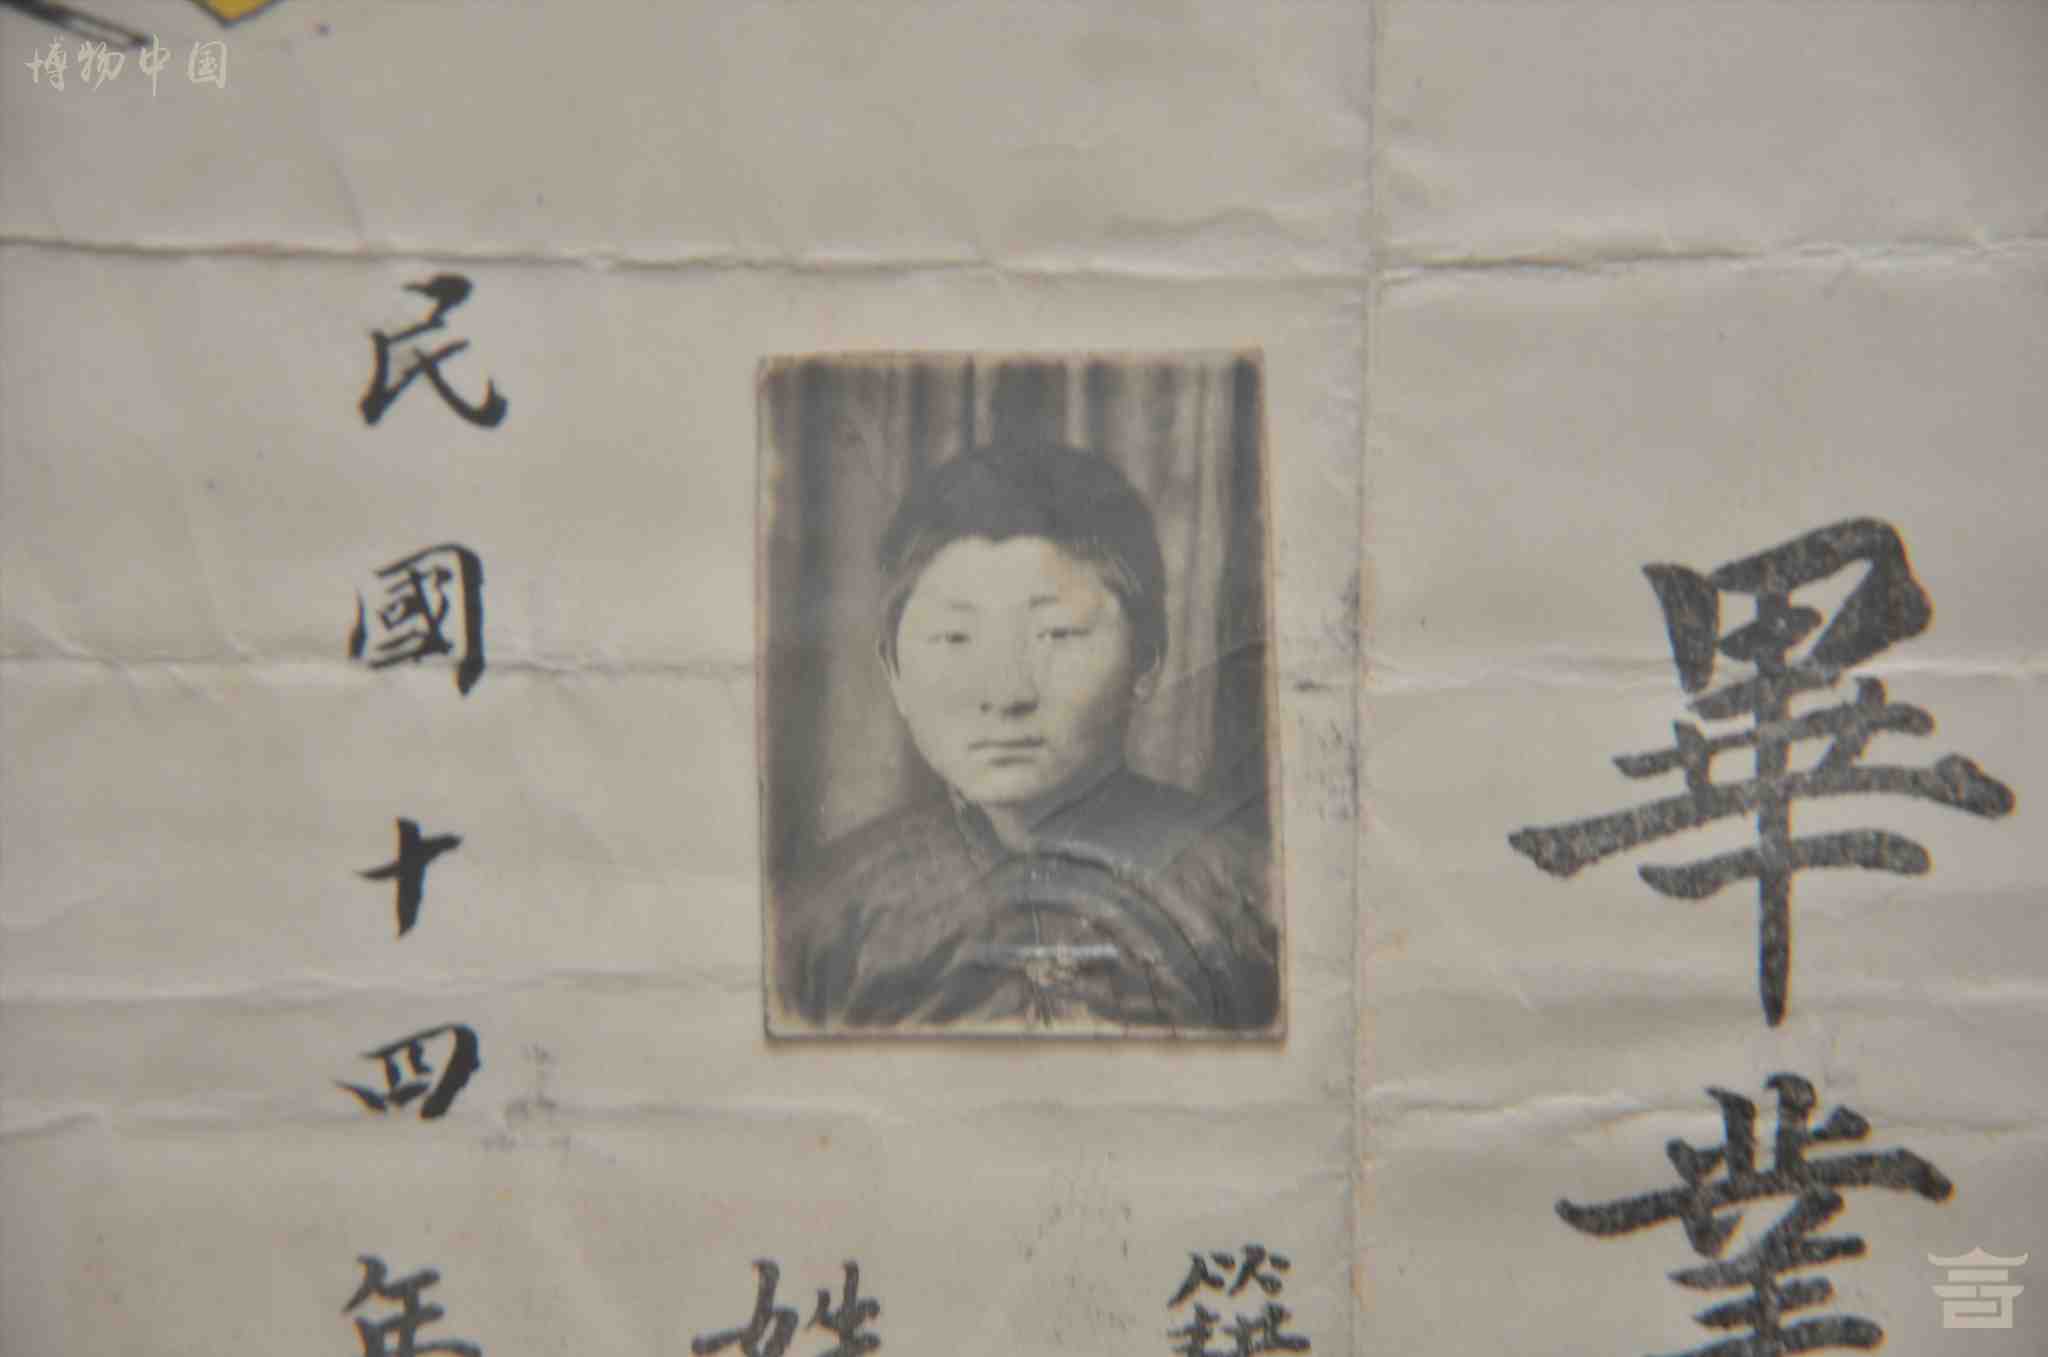 博物中国
畢業
籍
姓
民國十四年